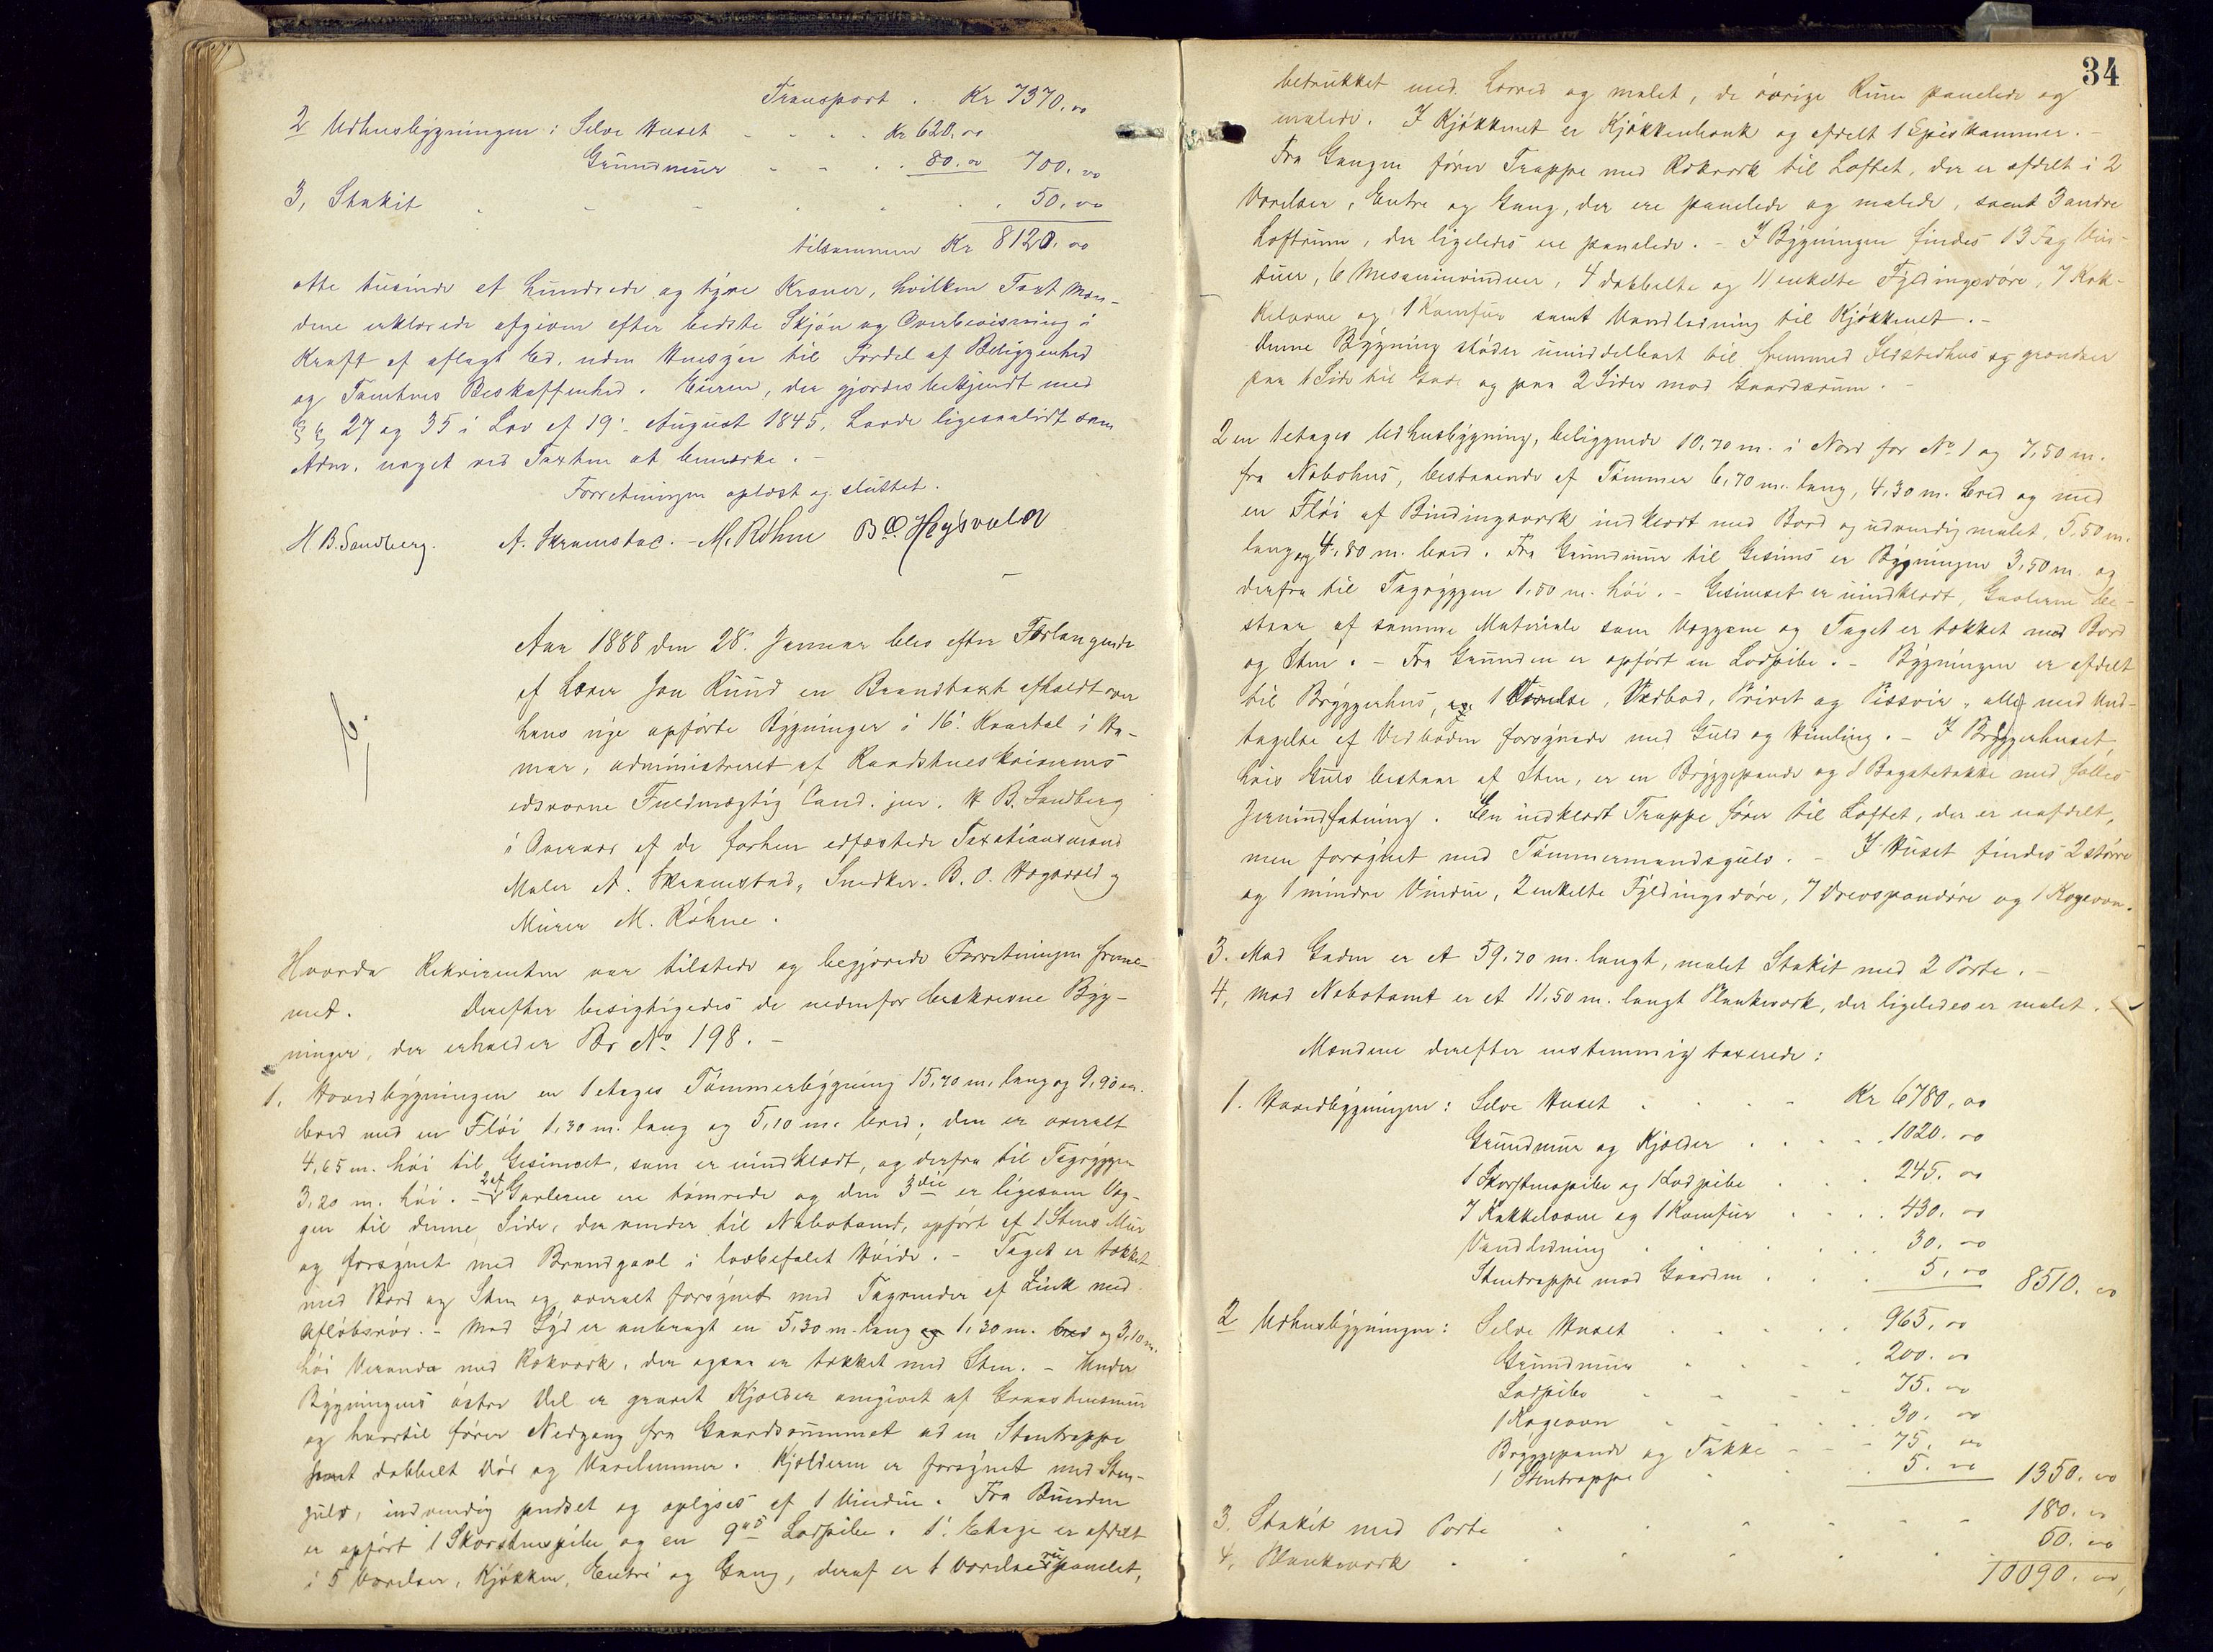 Transport . Kr 7370.00
2 Udhusbygningen: Selve Huset - - - . Kr 620.00
Grundmur - - . . 80.00 700.00
3, Stakit . - - . . . . 50.00
tilsammen Kr 8120.00
otte tusinde et hundrede og tyve Kroner, hvilken Taxt Mæn-
dene erklærede afgiven efter bedste Skjøn og Overbevisning i
Kraft af aflagt Ed, uden Hensyn til Fordel af Beliggenhed
og Tomtens Beskaffenhed. Eieren, der gjordes bekjendt med
§§ 27 og 35 i Lov af 19. August 1845, havde ligesaalidt som
Adm. noget ved Taxten at bemærke. -
Forretningen oplæst og sluttet.
H. B. Sandberg. A. Skramstad. - M. Röhne B. O. Høgsvold
Aar 1888 den 28. Januar blev efter Forlangende
af Lærer Jon Ruud en Brandtaxt afholdt over
hans nye opførte Bygninger i 16. Kvartal i Ha-
mar, administreret af Raadstueskriverens
edsvorne Fuldmægtig Cand. jur. H. B. Sandberg
i Overvær af de forhen edfæstede Taxationsmænd
Maler A. Skramstad, Snedker B. O. Høgsvold og
Murer M. Röhne.
Hvorda Rekvirenten var tilstede og begjærede Forretningen frem-
met. Derefter besigtigedes de nedenfor beskrevne Byg-
ninger, der erholder Br No 198. -
1. Hovedbygningen en 1 etages Tømmerbygning 15,70 m. lang og 9,90 m.
bred med en Fløi 1,30 m. lang og 5,10 m. bred; den er overalt
4,65 m. høi til Gesimset, som er uindklædt, og derfra til Tagryggen
3,20 m. høi. - 2 af Gavlerne ere tømrede og den 3die er ligesom Væg-
gen til denne Side, der vender til Nabotomt, opført af 1 Stens Mur
og forsynet med Brandgavl i lovbefalet Høide. - Taget er tækket
med Bord og Sten og overalt forsynet med Tagrender af Zink med
Afløbsrør. - Mod Syd er anbragt en 5,30 m. lang og 1,30 m. bred og 3,10 m.
høi Veranda med Rækværk, der ogsaa er tækket med Sten. - Under
Bygningens østre Del er gravet Kjælder omgivet af Graastensmur
og hvortil fører Nedgang fra Gaardsrummet ad en Stentrappe
samt dobbelt Dør og Kjælderlem. Kjælderen er forsynet med Sten-
gulv, indvendig pudset og oplyses af 1 Vindu. Fra Bunden
er opført 1 Skorstenspibe og en 9"s Lodpibe. 1. Etage er afdelt
i 5 Værelser, Kjøkken, Entré og Gang, deraf er 1 Værelse panelet,
34
betrukket med Lærred og malet, de øvrige Rum panelede og
malede. I Kjøkkenet er Kjøkkenbænk og afdelt 1 Spiskammer. -
Fra Gangen fører Trappe med Rækværk til Loftet, der er afdelt i 2
Værelser, Entre og Gang, der ere panelede og malede, samt 3 andre
Loftsrum, der ligeledes ere panelede. - I Bygningen findes 13 Fag Vin-
duer, 6 Mesaninvinduer, 4 dobbelte og 11 enkelte Fyldingsdøre, 7 Kak-
kelovne og 1 Komfur samt Vandledning til Kjøkkenet. -
Denne Bygning støder umiddelbart til fremmed Ildstedhus og grændser
paa 1 Side til Gade og paa 2 Sider mod Gaardsrum. -
2 en 1 etages Udhusbygning, beliggende 10,70 m. i Nord for No 1 og 7,50 m.
fra Nabohus, bestaaende af Tømmer 6,70 m. lang, 4,30 m. bred og med
en Fløi af Bindingsværk indklædt med Bord og udvendig malet, 5,50 m.
lang og 4,80 m. bred. Fra Grundmur til Gesims er Bygningen 3,50 m. og
derfra til Tagryggen 1,50 m. høi. - Gesimset er uindklædt, Gavlerne be-
staar af samme Materiale som Væggene og Taget er tækket med Bord
og Sten. - Fra Grunden er opført en Lodpibe. - Bygningen er afdelt
til Bryggerhus, 1 Værelse, Vedbod, Privet og Pissoir, alle med Und-
tagelse af Vedboden forsynede med Gulv og Himling. - I Bryggerhuset,
hvis Gulv bestaar af Sten, er en Bryggepande og 1 Bagstetakke med fælles
Jernindfatning. En indklædt Trappe fører til Loftet, der er uafdelt,
men forsynet med Tømmermandsgulv. - I Huset findes 2 større
og 1 mindre Vindue, 2 enkelte Fyldingsdøre, 7 Drevspandøre og 1 Kogeovn.
3. Mod Gaden er et 59,70 m. langt, malet Stakit med 2 Porte. -
4, mod Nabotomt er et 11,50 m. langt Plankeværk, der ligeledes er malet. -
Mændene derefter enstemmig taxerede:
1. Hovedbygningen: Selve Huset . - - - Kr 6780,00
Grundmur og Kjælder . . . . 1020.00
1 Skorstenspibe og 1 Lodpibe . . . 245.00
7 Kakkelovne og 1 Komfur . . . . 430.00
Vandledning . . . . . 30.00
Stentrappe mod Gaarden . . . 5,00 8510.00
2 Udhusbygningen: Selve Huset . . . . . 965,00
Grundmur . . . . 200.00
Lodpibe . - - - 75.00
1 Kogeovn . - - . . 30.00
Bryggepande og Takke - - - 75.00
1 Stentrappe . . . 5.00 1350.00
3. Stakit med Porte . . - - - - 180.00
4, Plankeværk . . . . . . . 50.00
10090.00,